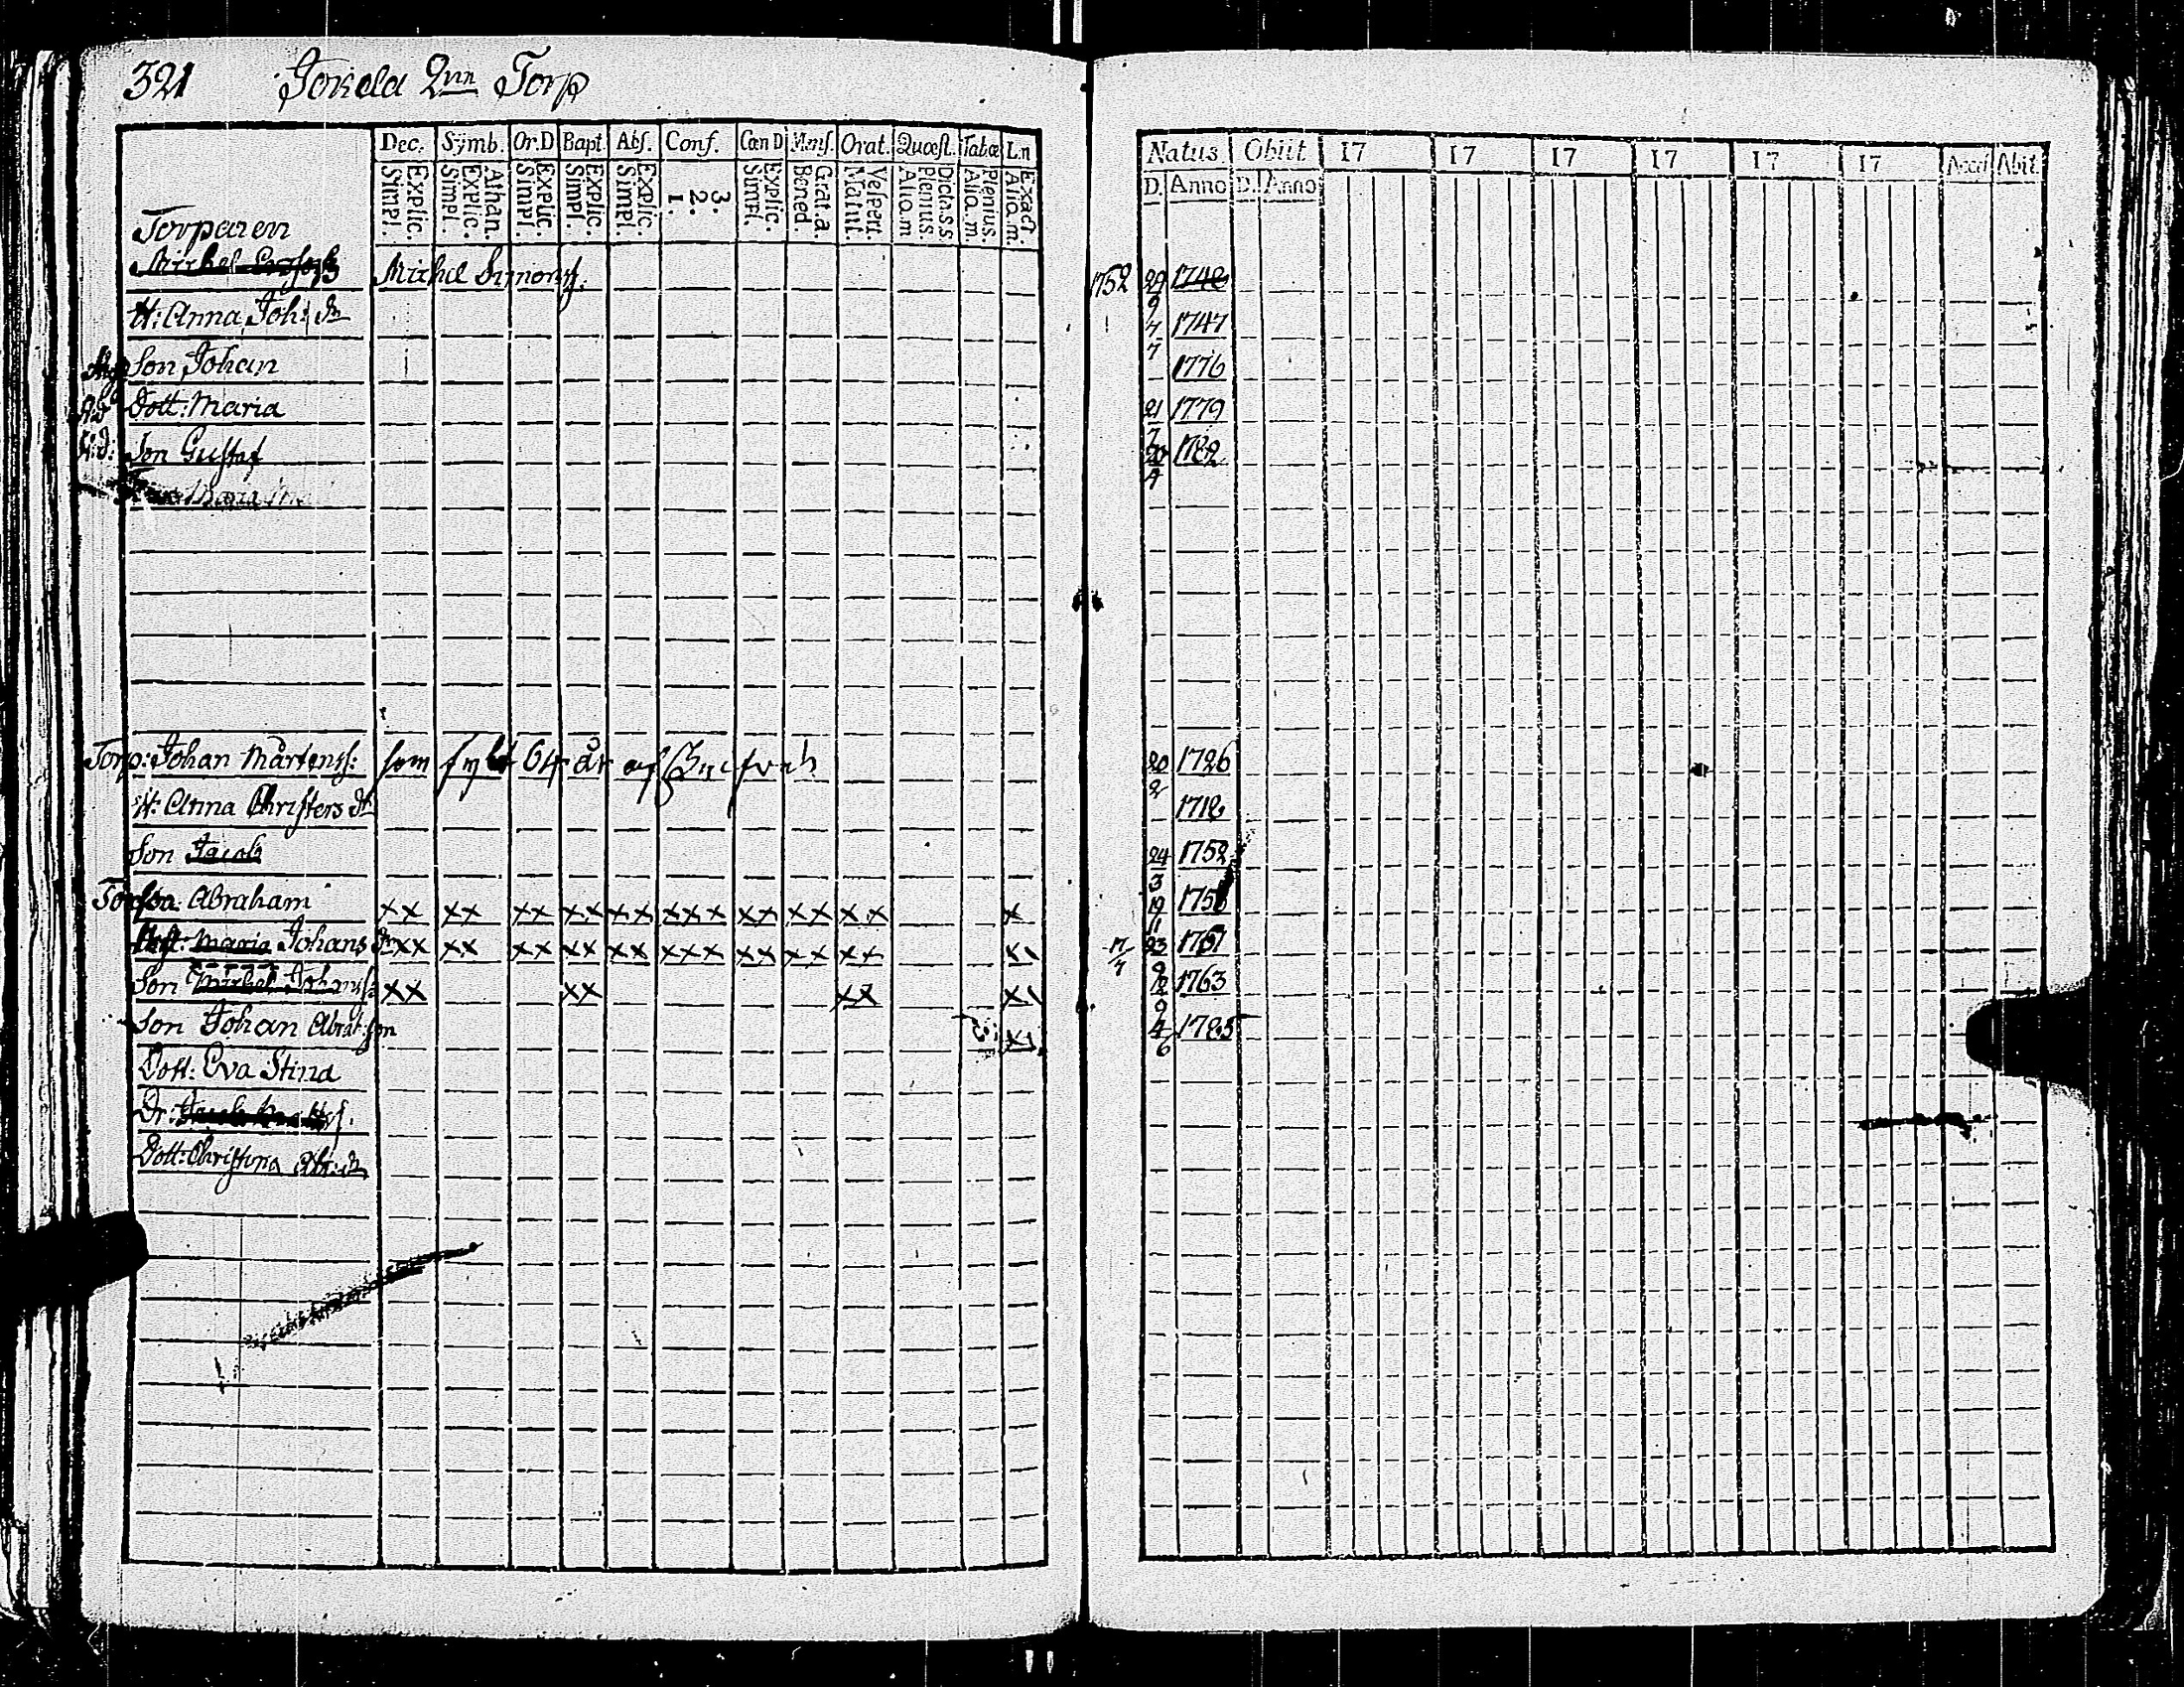 321 Jokela Torp
Dec. Symb. Or.D Bapt. Abs. Conf. Cœn D Mens. Orat. Quæst. Tabæ L.n
Explic. Simpl. Athan. Explic. Simpl. Explic. Simpl. Explic. Simpl. Explic. Simpl. 3. 2. 1. Explic. Simpl. Grat. a. Bened. Vespert. Matut. Dicta. S.S. Plenius. Aliq. m. Plenius. Aliq. m. Exact. Aliq. m.
Natus. Obiit 17 17 17 17 17 17 Abit.
D. Anno D. Anno
Torparen
Michel Michel Simonss. 1752 29/9 1748
H: Anna Joh: dr 7/7 1747
Son Johan 1776
Dott: Maria 21/7 1779
Son Gustaf 20/4 1782
Maria
Torp: Johan Mårtenss: som fylt 64 år 20/2 1726
H: Anna Christers dr 1718
Son Jacob 24/3 1752
Abraham xx xx xx xx xx xxx xx xx xx x 19/11 175
Maria Johans dr xx xx xx xx xx xxx xx xx xx xx 17/7 23/9 1757
Son Michel Johanss: xx xx xx xx 12/9 1763
Son Johan Abrah:son xx 4/6 1785
Dott: Eva Stina
Dr:
Dott: Christina Abr: dr